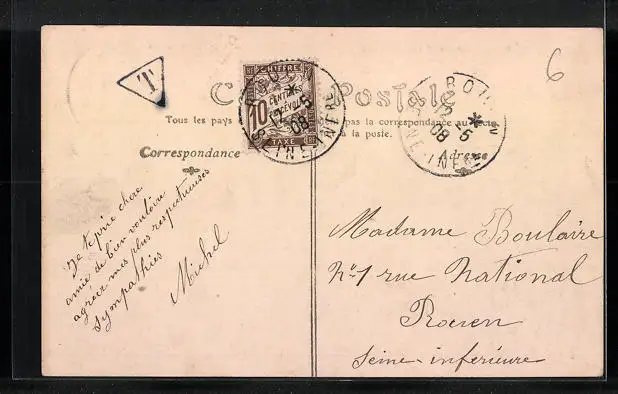 6
T
Carte Postale
Tous les pays pas la correspondance au recto
à la poste.
CHIFFRE
10 CENTIMES
A PERCEVOIR
TAXE
ROUEN
2 - 5
08
SEINE INFRE
ROUEN
2 - 5
08
SEINE INFRE
Correspondance
Adresse
Je te prie chere
amie de bien vouloir
agréer mes plus respectueuses
sympathies
Michel
Madame Boulaire
No 1 rue National
Rouen
Seine-inférieure